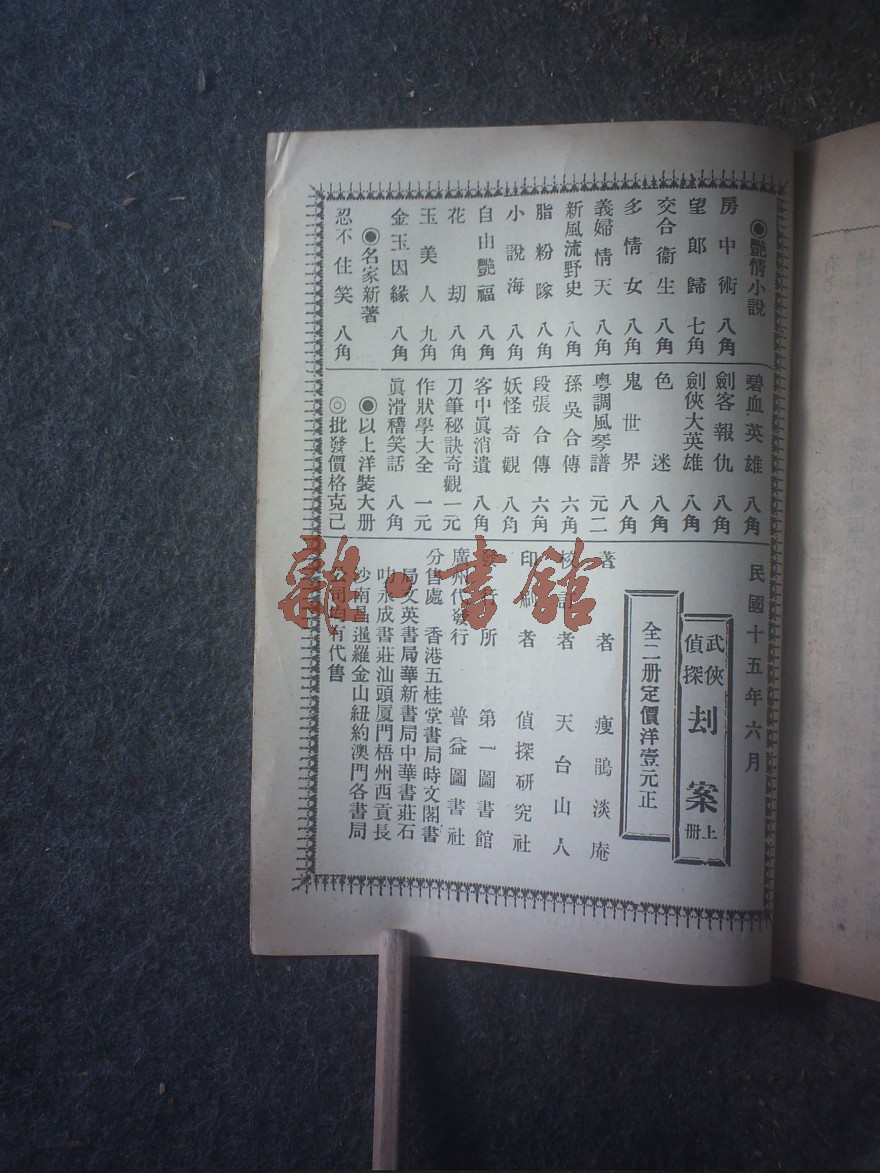 ◉艷情小說
房中術 八角
望郎歸 七角
交合衞生 八角
多情女 八角
義婦情天 八角
新風流野史 八角
脂粉隊 八角
小說海 八角
自由艷福 八角
花劫 八角
玉美人 九角
金玉因緣 八角
◉名家新著
忍不住笑 八角
碧血英雄 八角
劍客報仇 八角
劍俠大英雄 八角
色迷 八角
鬼世界 八角
粵調風琴譜 元二
孫吳合傳 六角
段張合傳 六角
妖怪奇觀 八角
客中眞消遺 八角
刀筆秘訣奇觀 一元
作狀學大全 一元
眞滑稽笑話 八角
◉以上洋裝大册
◎批發價格克己
民國十五年六月
武俠偵探 刦案 上册
全二册定價洋壹元正
著者 瘦鵑淡庵
校訂者 天台山人
印刷者 偵探研究社
發行所 第一圖書館
廣州代發行 普益圖書社
分售處 香港五桂堂書局時文閣書
局文英書局華新書局中華書莊石
叻永成書莊汕頭厦門梧州西貢長
沙南昌暹羅金山紐約澳門各書局
公司均有代售
書館